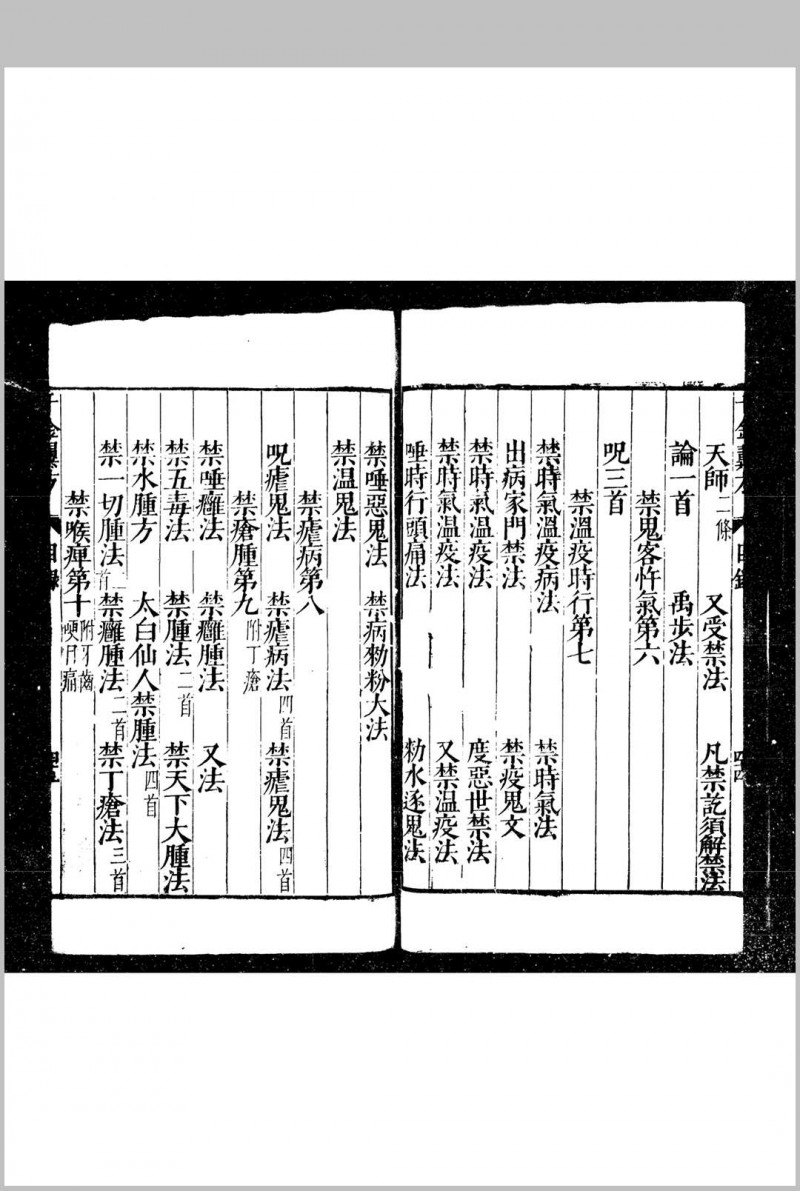 千金翼方 目錄 四四
天師二條 又受禁法 凡禁訖須解禁法
論一首 禹步法
禁鬼客忤氣第六
呪三首
禁溫疫時行第七
禁時氣溫疫病法 禁時氣法
出病家門禁法 禁疫鬼文
禁時氣溫疫法 度惡世禁法
禁時氣溫疫法 又禁温疫法
唾時行頭痛法 勑水逐鬼法
禁唾惡鬼法 禁病勑粉大法
禁温鬼法
禁瘧病第八
呪瘧鬼法 禁瘧病法四首 禁瘧鬼法四首
禁瘡腫第九附丁瘡
禁唾癰法 禁癰腫法 又法
禁五毒法 禁腫法二首 禁天下大腫法
禁水腫方 太白仙人禁腫法四首
禁一切腫法首 禁癰腫法二首 禁丁瘡法三首
禁喉痺第十附牙齒哽目痛
千金翼方 目錄 四五